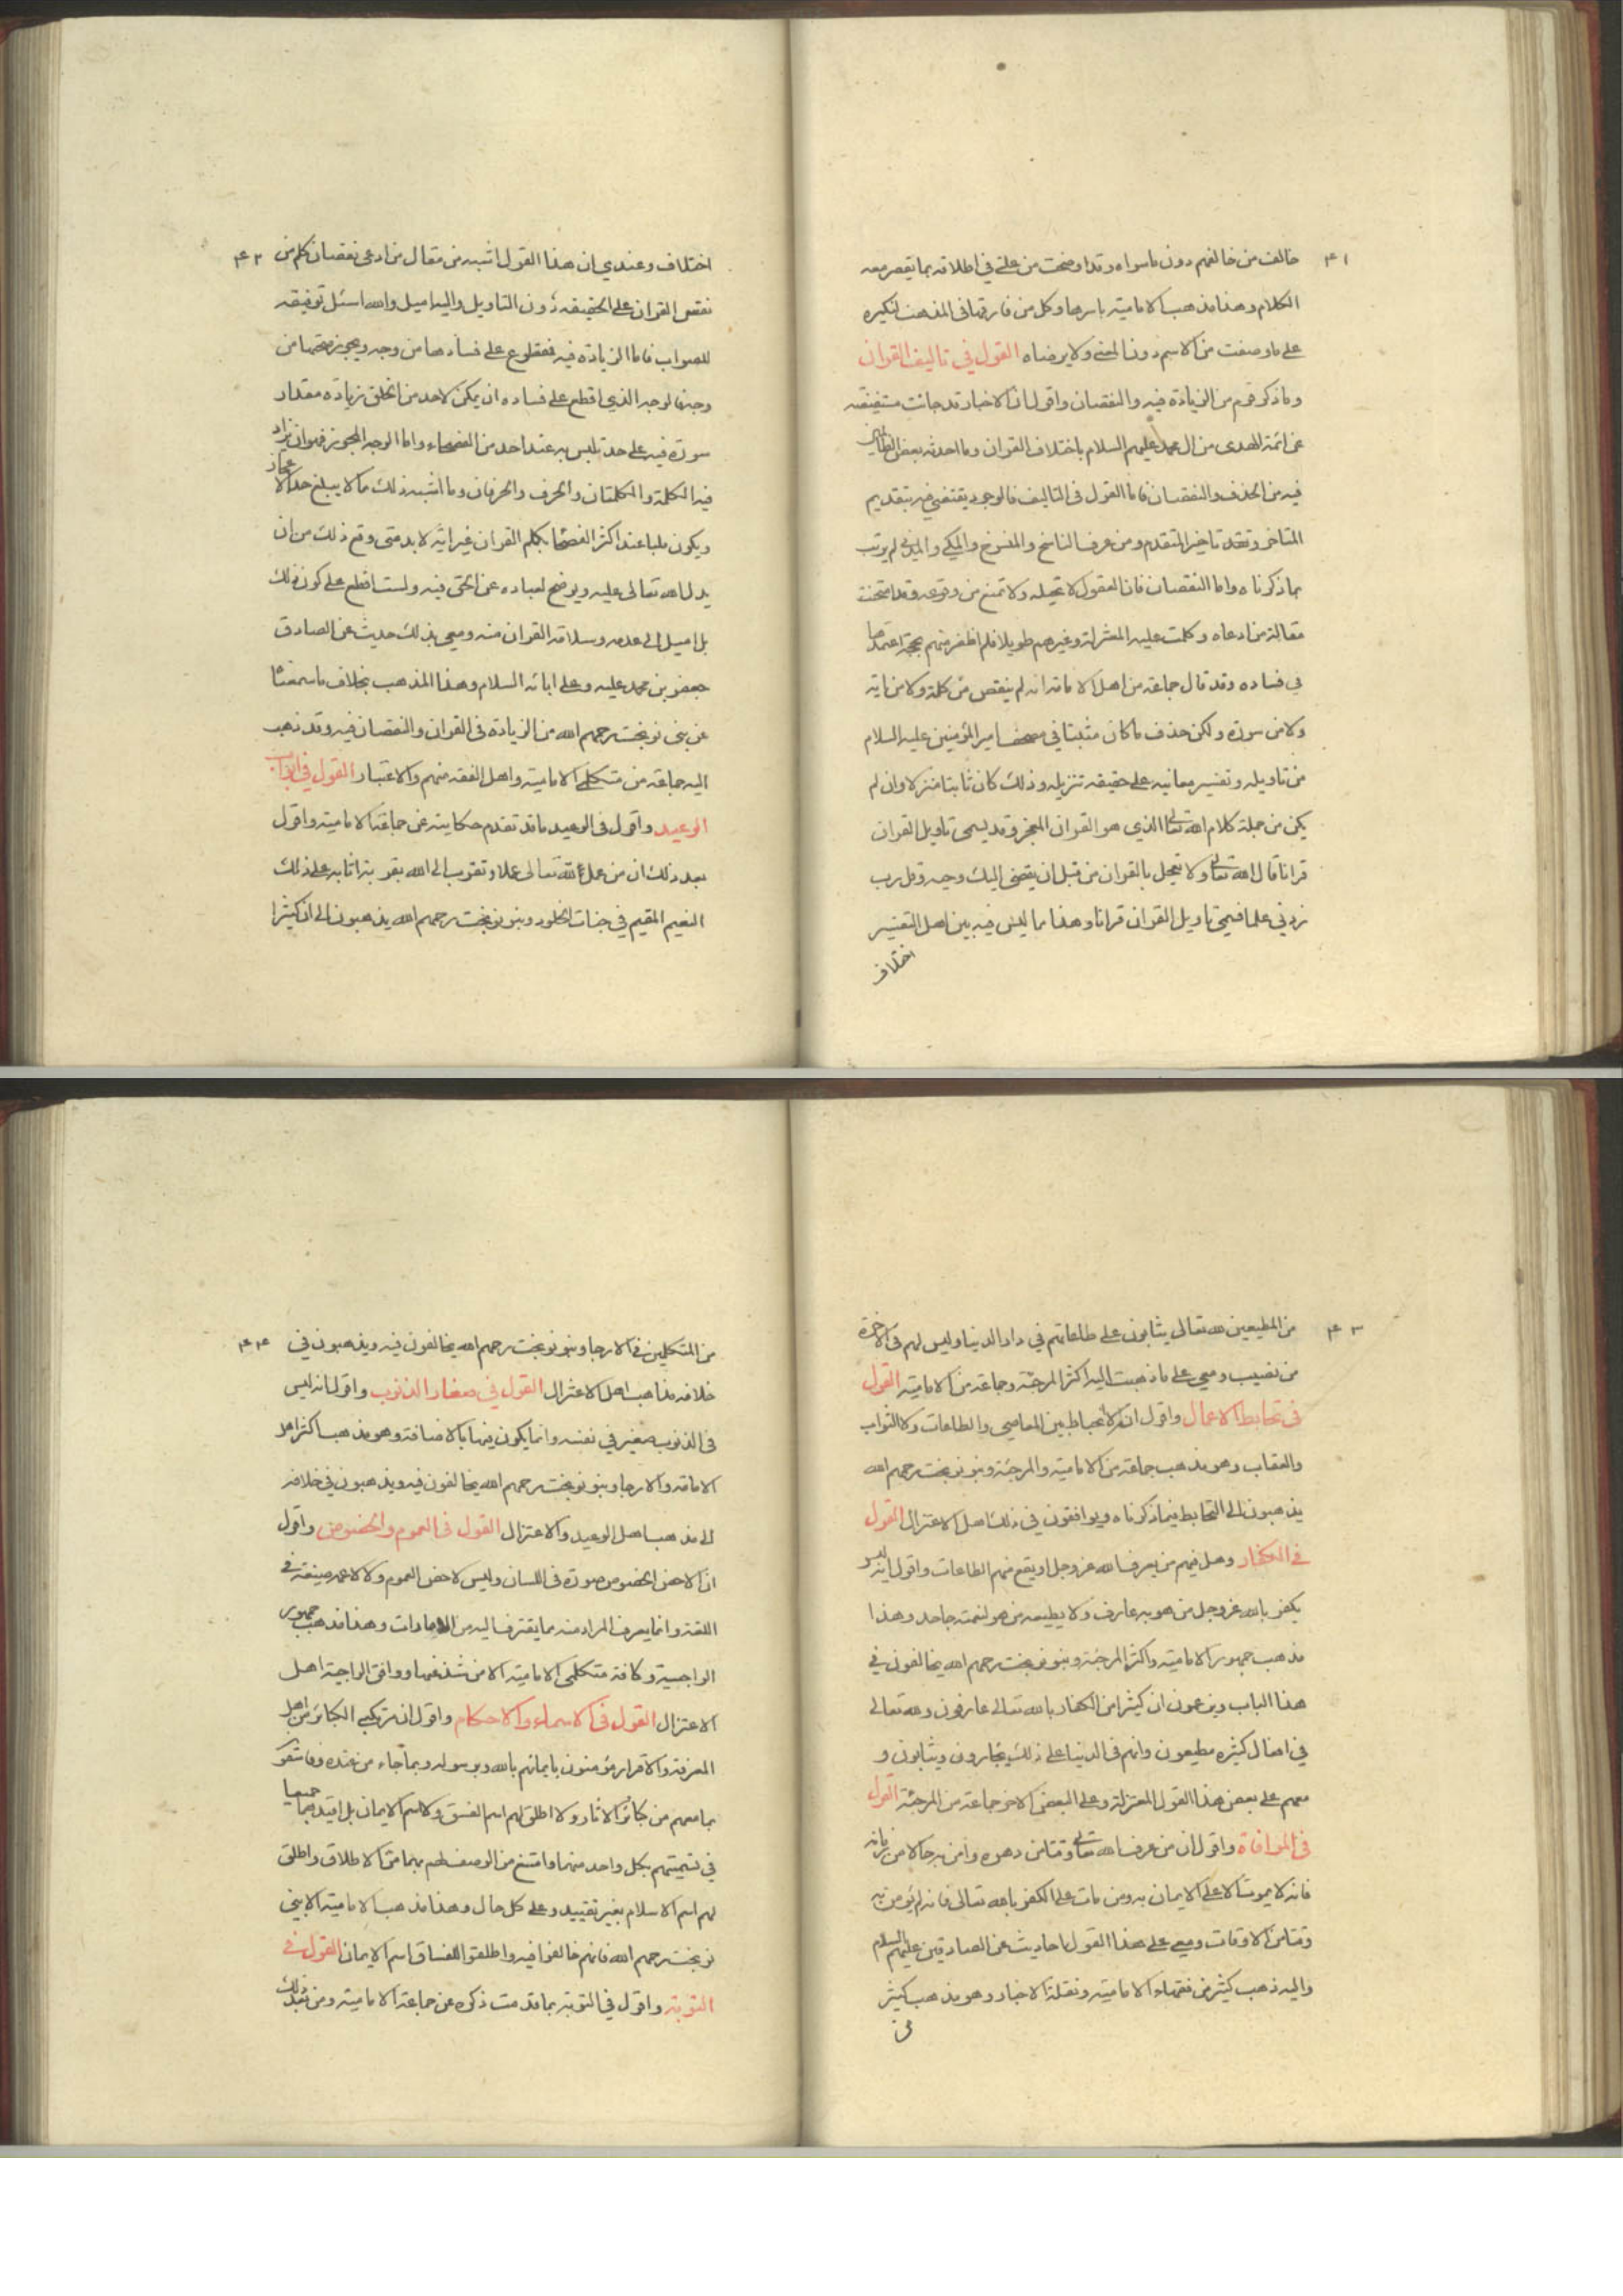 ۴۱
خالف من خالفهم دون ما سواه وقد اوضحت من علتي في اطلاقه بما يقصر معه
الكلام وهذا مذهب الامامية باسرها وكل من فارقها في المذهب لنكيره
على ما وصفت من الاسم دون المعنى ولا يرضاه القول في تاليف القران
وما ذكر قوم من الزيادة فيه والنقصان واقول ان الاخبار قد جائت مستفيضه
عن ائمة الهدى من ال محمد عليهم السلام باختلاف القران وما احدثه بعض الظالمين
فيه من الحذف والنقصان فاما القول في التاليف فالوجود يقتضي فيه بتقديم
المتاخر وتقد تاخير المتقدم ومن عرف الناسخ والمنسوخ والمكي والمدني لم يرتب
بما ذكرناه واما النقصان فان العقول لا تحيله ولا تمنع من وقوعه وقد امتحنت
مقالة من ادعاه وكلمت عليه المعتزلة وغيرهم طويلا فلم اظفر منهم بحجة اعتمدها
في فساده وقد قال جماعة من اهل الامامة انه لم ينقص من كلمة ولا من اية
ولا من سورة ولكن حذف ما كان مثبتا في مصحف امير المؤمنين عليه السلام
من تاويله وتفسير معانيه على حقيقة تنزيله وذلك كان ثابتا منزلا وان لم
يكن من جملة كلام الله تعالى الذي هو القران المعجز وقد يسمى تاويل القران
قرانا قال الله تعالى ولا تعجل بالقران من قبل ان يقضى اليك وحيه وقل رب
زدني علما فيسمى تاويل القران قرانا وهذا ما ليس فيه بين اهل التفسير
اختلاف
۴۲
اختلاف وعندي ان هذا القول اشبه من مقال من ادعى نقصان كلم من
نفس القران على الحقيقه دون التاويل واليه اميل والله اسئل توفيقه
للصواب فاما الزيادة فيه فمقطوع على فسادها من وجه ويجوز صحتها من
وجه فالوجه الذي اقطع على فساده ان يمكن لاحد من الخلق زيادة مقدار
سورة فيه على حد يلبس به عند احد من الفصحاء واما الوجه المجوز فهو ان يزاد
فيه الكلمة والكلمتان والحرف والحرفان وما اشبه ذلك مما لا يبلغ حد الاعجاز
ويكون ملبسا عند اكثر الفصحا بكلم القران غير انه لا بد متى وقع ذلك من ان
يدل الله تعالى عليه ويوضح لعباده عن الحق فيه ولست اقطع على كون ذلك
بل اميل الى عدمه وسلامة القران منه ومعي بذلك حديث عن الصادق
جعفر بن محمد عليه وعلى ابائه السلام وهذا المذهب بخلاف ما سمعنا
عن بني نوبخت رحمهم الله من الزيادة في القران والنقصان فيه وقد ذهب
اليه جماعة من متكلمي الامامية واهل الفقه منهم والاعتبار القول في ابواب
الوعيد واقول في الوعيد ما قد تقدم حكايته عن جماعة الامامية واقول
بعد ذلك ان من عمل لله تعالى عملا وتقرب الى الله بقربة اثابه على ذلك
النعيم المقيم في جنات الخلود وبنو نوبخت رحمهم الله يذهبون الى ان كثيرا
۴۳
من المطيعين لله تعالى يثابون على طاعاتهم في دار الدنيا وليس لهم في الاخرة
من نصيب ومعي على ما ذهبت اليه اكثر المرجئة وجماعة من الامامية القول
في تحابط الاعمال واقول انه لا تحابط بين المعاصي والطاعات ولا الثواب
والعقاب وهو مذهب جماعة من الامامية والمرجئة وبنو نوبخت رحمهم الله
يذهبون الى التحابط فيما ذكرناه ويوافقون في ذلك اهل الاعتزال القول
في الكفار وهل فيهم من يعرف الله عز وجل او يقع منهم الطاعات واقول انه ليس
يكفر بالله عز وجل من هو به عارف ولا يطيعه من هو لنعمته جاحد وهذا
مذهب جمهور الامامية واكثر المرجئة وبنو نوبخت رحمهم الله يخالفون في
هذا الباب ويزعمون ان كثيرا من الكفار بالله تعالى عارفون ولله تعالى
في افعال كثيره مطيعون وانهم في الدنيا على ذلك يجازون ويثابون و
معهم على بعض هذا القول المعتزلة وعلى البعض الاخر جماعة من المرجئة القول
في الموافاة واقول ان من عرف الله تعالى وقتا من دهره وامن به حالا من زمانه
فانه لا يموت الا على الايمان به ومن مات على الكفر بالله تعالى فانه لم يؤمن به
وقتا من الاوقات ومعي على هذا القول احاديث عن الصادقين عليهم السلام
واليه ذهب كثير من فقهاء الامامية ونقلة الاخبار وهو مذهب كثير
من
۴۴
من المتكلمين في الارجا وبنو نوبخت رحمهم الله يخالفون فيه ويذهبون في
خلافه مذاهب اهل الاعتزال القول في صغار الذنوب واقول انه ليس
في الذنوب صغير في نفسه وانما يكون فيها بالاضافة وهو مذهب اكثر اهل
الامامة والارجا وبنو نوبخت رحمهم الله يخالفون فيه ويذهبون في خلافه
الى مذهب اهل الوعيد والاعتزال القول في العموم والخصوص واقول
ان لاخص الخصوص صورة في اللسان وليس لاخص العموم ولا لاعمه صيغة في
اللغة وانما يعرف المراد منه بما يقترن اليه من الامارات وهذا مذهب جمهور
الراجية وكافة متكلمي الامامية الا من شذ عنها ووافق الراجية اهل
الاعتزال القول في الاسماء والاحكام واقول ان مرتكبي الكبائر من اهل
المعرفة والاقرار مؤمنون بايمانهم بالله وبرسوله وبما جاء من عنده وفاسقون
بما معهم من كبائر الاثار ولا اطلق لهم اسم الفسق ولا اسم الايمان بل اقيدهما جميعا
في تسميتهم بكل واحد منهما وامتنع من الوصف لهم بهما من الاطلاق واطلق
لهم اسم الاسلام بغير تقييد وعلى كل حال وهذا مذهب الامامية الا بني
نوبخت رحمهم الله فانهم خالفوا فيه واطلقوا للفساق اسم الايمان القول في
التوبة واقول في التوبة بما قدمت ذكره عن جماعة الامامية ومن بعد ذلك